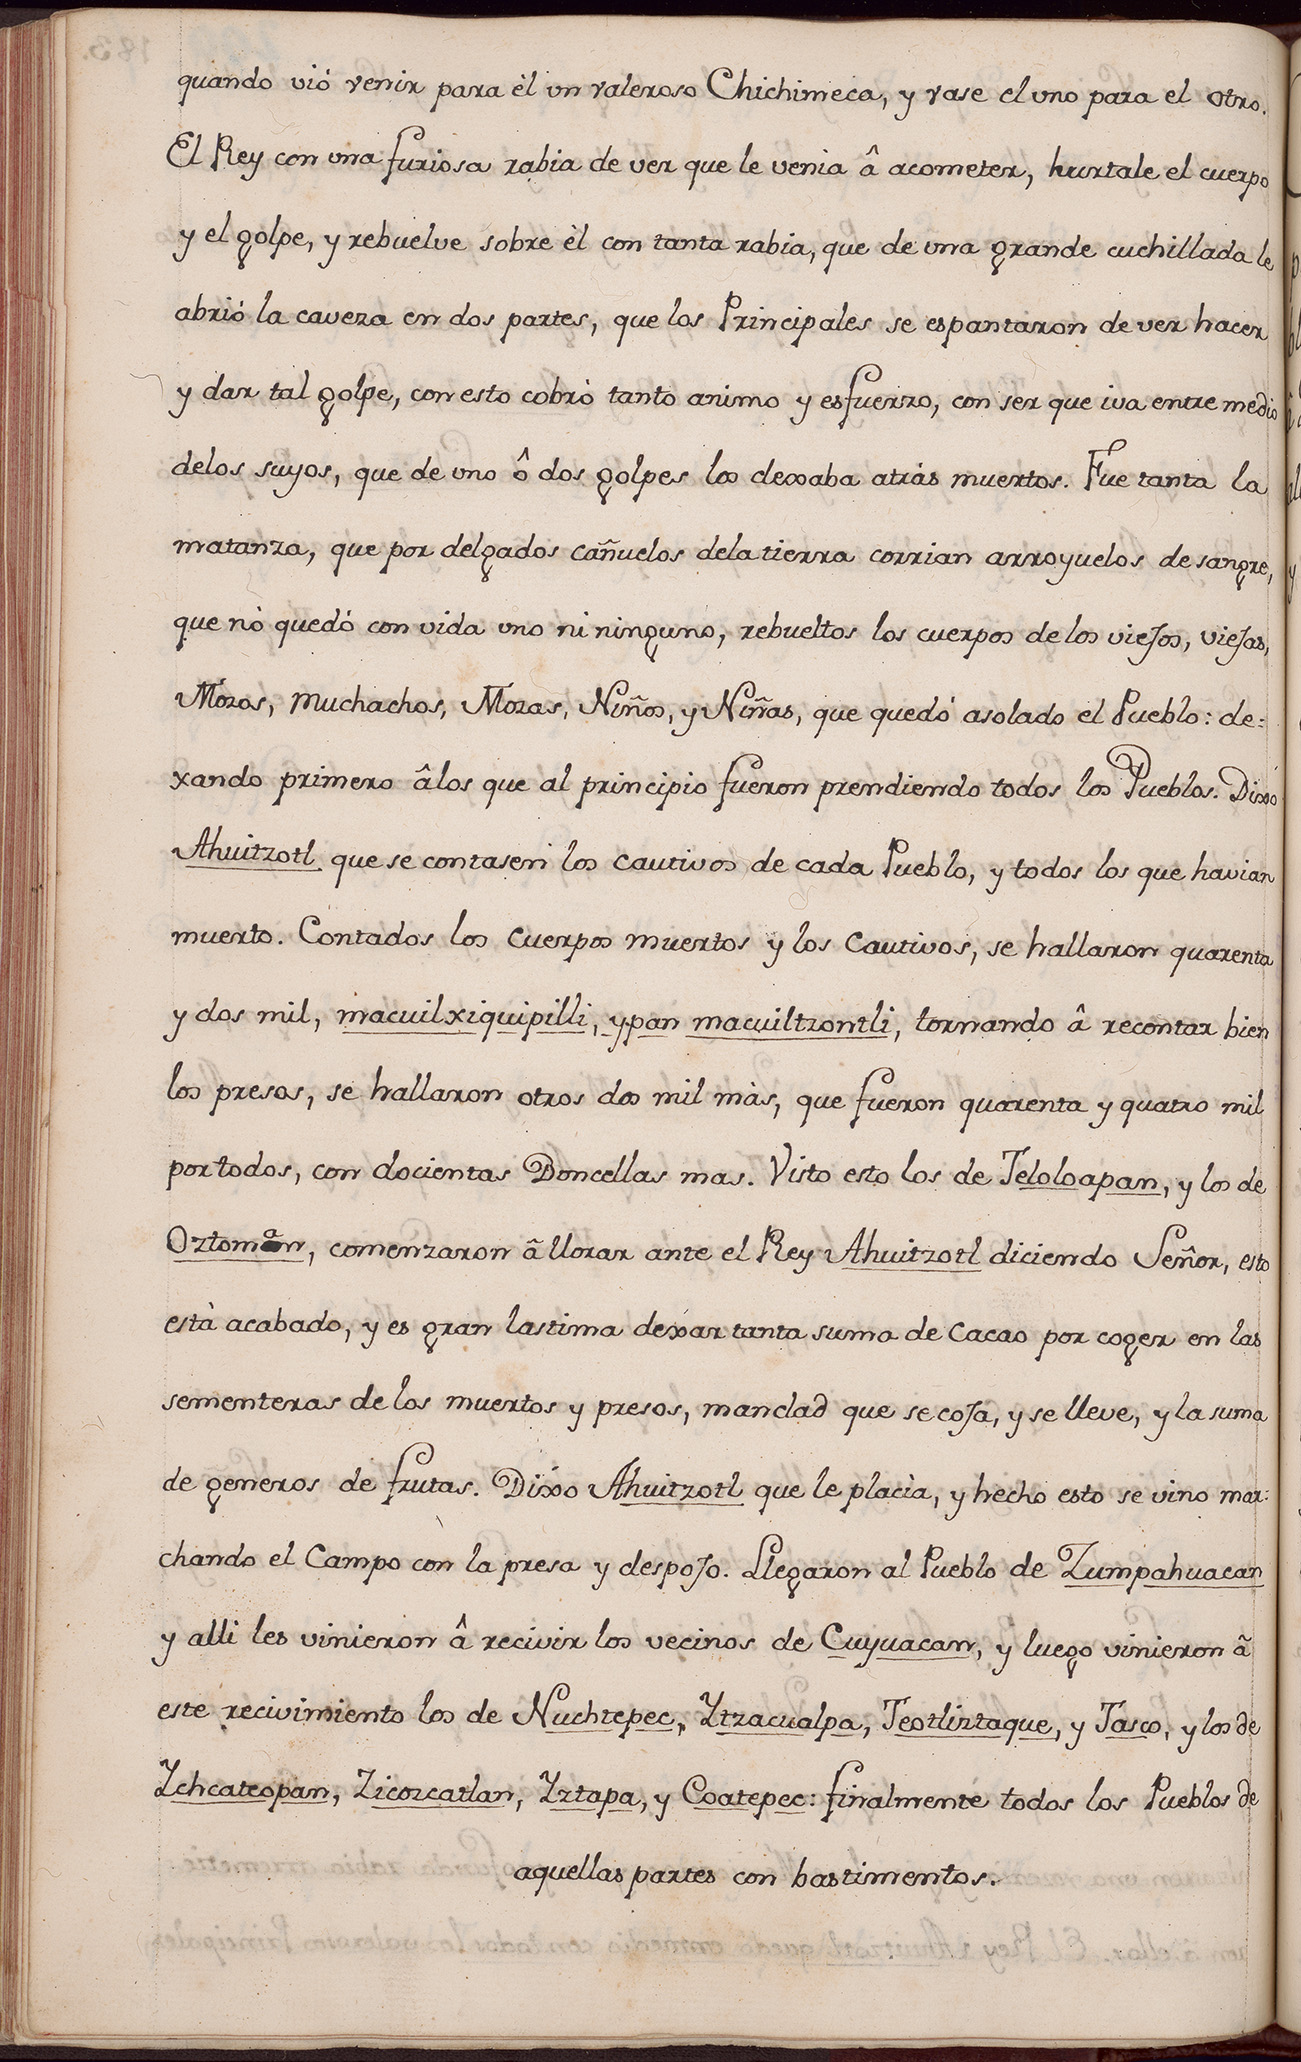 quando vió venir para èl un valeroso Chichimeca, y vase el uno para el otro.
El Rey con una furiosa rabia de ver que le venia â acometer, hurtale el cuerpo
y el golpe, y rebuelve sobre èl con tanta rabia, que de una grande cuchillada le
abrió la caveza en dos partes, que los Principales se espantaron de ver hacer
y dar tal golpe, con esto cobró tanto animo y esfuerzo, con ser que iva entre medio
delos suyos, que de uno ô dos golpes los dexaba atrás muertos. Fue tanta la
matanza, que por delgados cañuelos dela tierra corrian arroyuelos de sangre,
que nò quedó con vida uno ni ninguno, rebueltos los cuerpos de los viejos, viejas,
Mozos, Muchachos, Mozas, Niños, y Niñas, que quedó asolado el Pueblo: de=
xando primero âlos que al principio fueron prendiendo todos los Pueblos. Dixo
Ahuitzotl que se contasen los cautivos de cada Pueblo, y todos los que havian
muerto. Contados los cuerpos muertos y los Cautivos, se hallaron quarenta
y dos mil, macuilxiquipilli, ypan macuiltzontli, tornando â recontar bien
los presos, se hallaron otros dos mil màs, que fueron quarenta y quatro mil
por todos, con docientas Doncellas mas. Visto esto los de Teloloapan, y los de
Oztoman, comenzaron â llorar ante el Rey Ahuitzotl diciendo Señor, esto
està acabado, y es gran lastima dexar tanta suma de Cacao por coger en las
sementeras de los muertos y presos, mandad que se coja, y se lleve, y la suma
de generos de frutas. Dixo Ahuitzotl que le placìa, y hecho esto se vino mar=
chando el Campo con la presa y despojo. Llegaron al Pueblo de Zumpahuacan
y alli les vinieron â recivir los vecinos de Cuyuacan, y luego vinieron â
este recivimiento los de Nuchtepec, Ytzacualpa, Teotliztaque, y Tasco, y los de
Ychcateopan, Zicozcatlan, Yztapa, y Coatepec: finalmente todos los Pueblos de
aquellas partes con bastimentos.